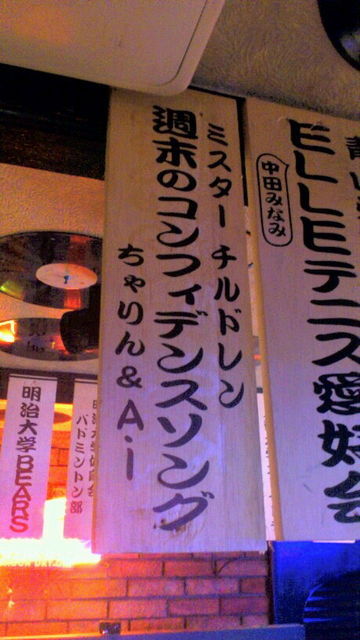 ヒLLヒテニス愛好会
中田みなみ
ミスター チルドレン
週末のコンフィデンスソング
ちゃりん&A.i
バドミントン部
明治大学BEARS